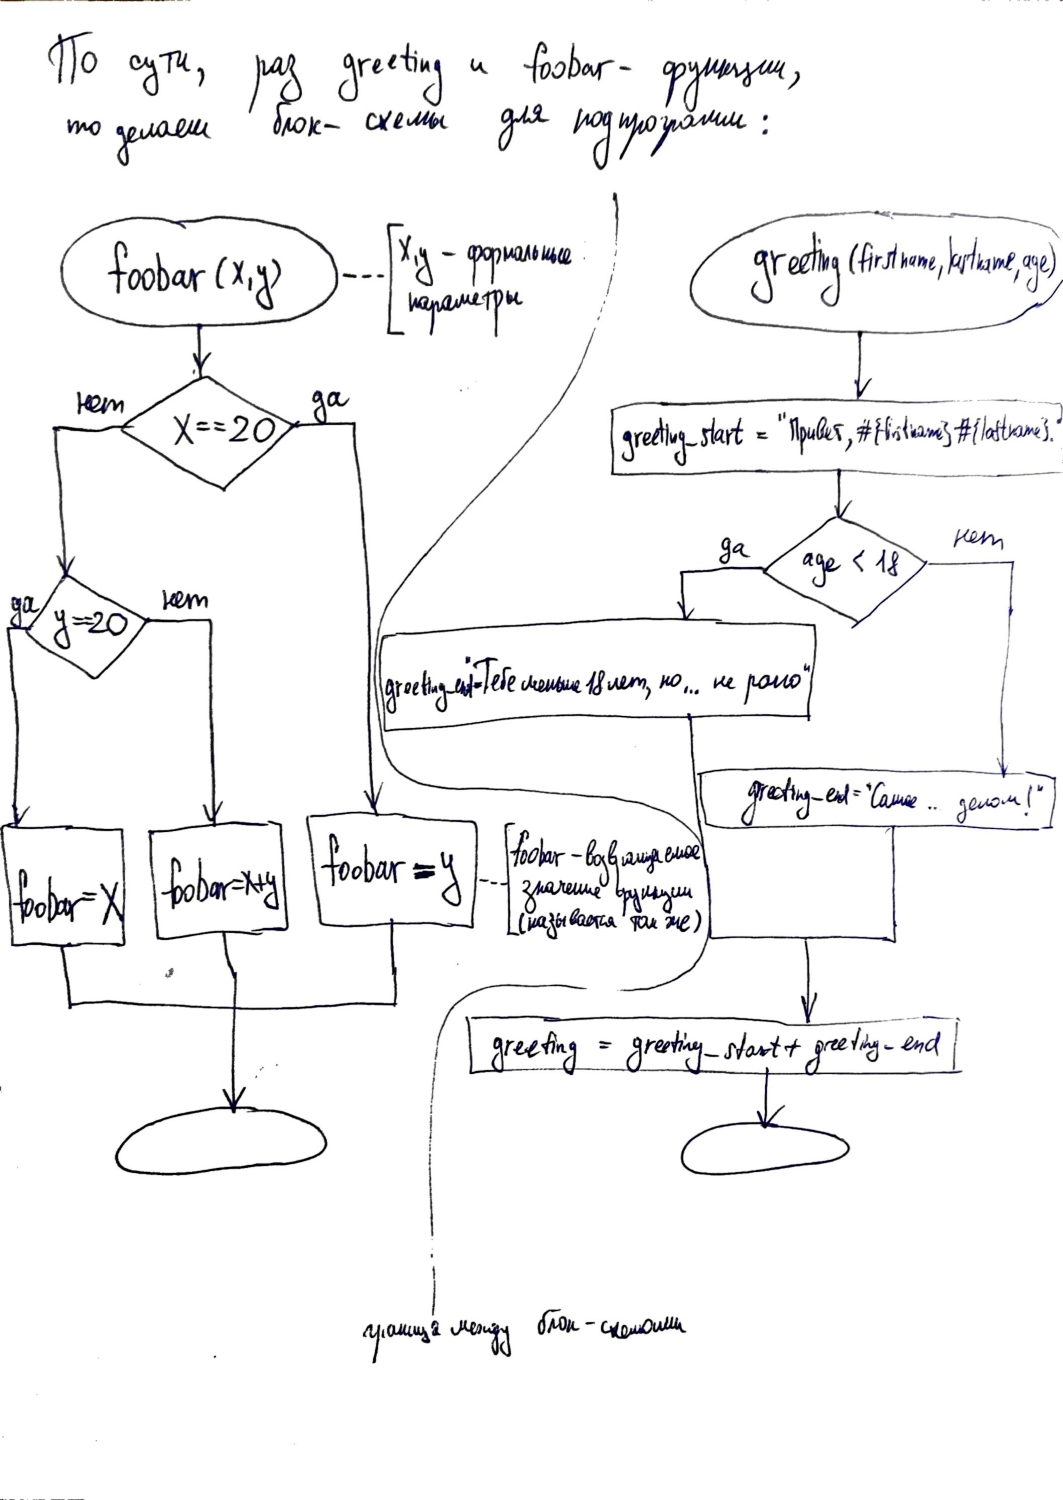 По сути, раз greeting и foobar - функции,
то делаем блок-схемы для подпрограмм:
foobar (x,y)
x,y - формальные
параметры
x==20
нет
да
y==20
да
нет
foobar=x
foobar=x+y
foobar=y
foobar - возвращаемое
значение функции
(называется так же)
greeting (firstname, lastname, age)
greeting_start = "Привет, #{firstname} #{lastname}."
age < 18
да
нет
greeting_end="Тебе меньше 18 лет, но... не рано"
greeting_end="Самое .. делом!"
greeting = greeting_start + greeting_end
граница между блок-схемами